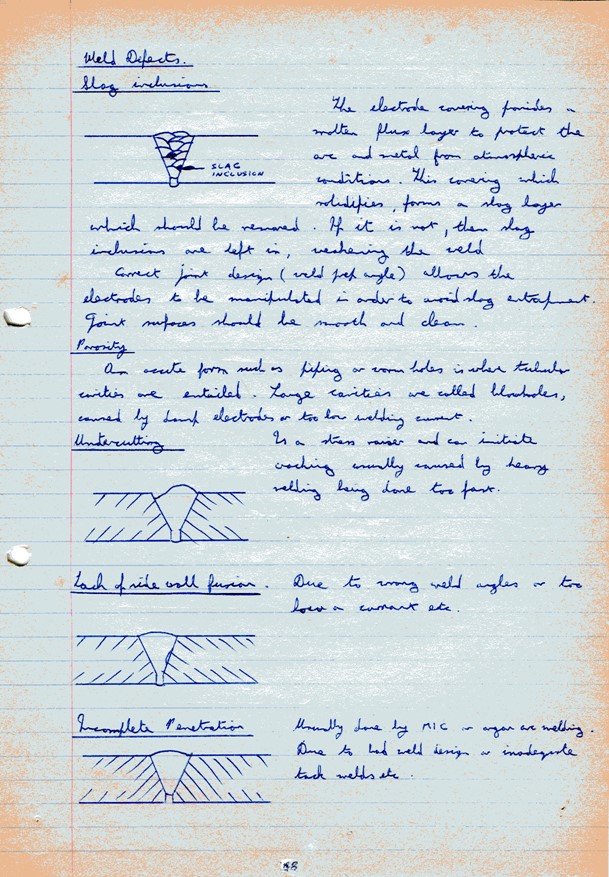 Weld Defects.
Slag inclusions
The electrode covering provides a
molten flux layer to protect the
arc and metal from atmospheric
SLAG
INCLUSION
conditions. This covering which
solidifies, forms a slag layer
which should be removed. If it is not, then slag
inclusions are left in, weakening the weld
Correct joint design (weld prep angle) allows the
electrodes to be manipulated in order to avoid slag entrapment.
Joint surfaces should be smooth and clean.
Porosity
An acute form such as piping or worm holes is when tubular
cavities are entailed. Large cavities are called blowholes,
caused by damp electrodes or too low welding current.
Undercutting
Is a stress raiser and can initiate
cracking usually caused by heavy
welding being done too fast.
Lack of side wall fusion.
Due to wrong weld angles or too
low a currant etc.
Incomplete Penetration
Usually done by MIG or argon arc welding.
Due to bad weld design or inadequate
tack welds etc.